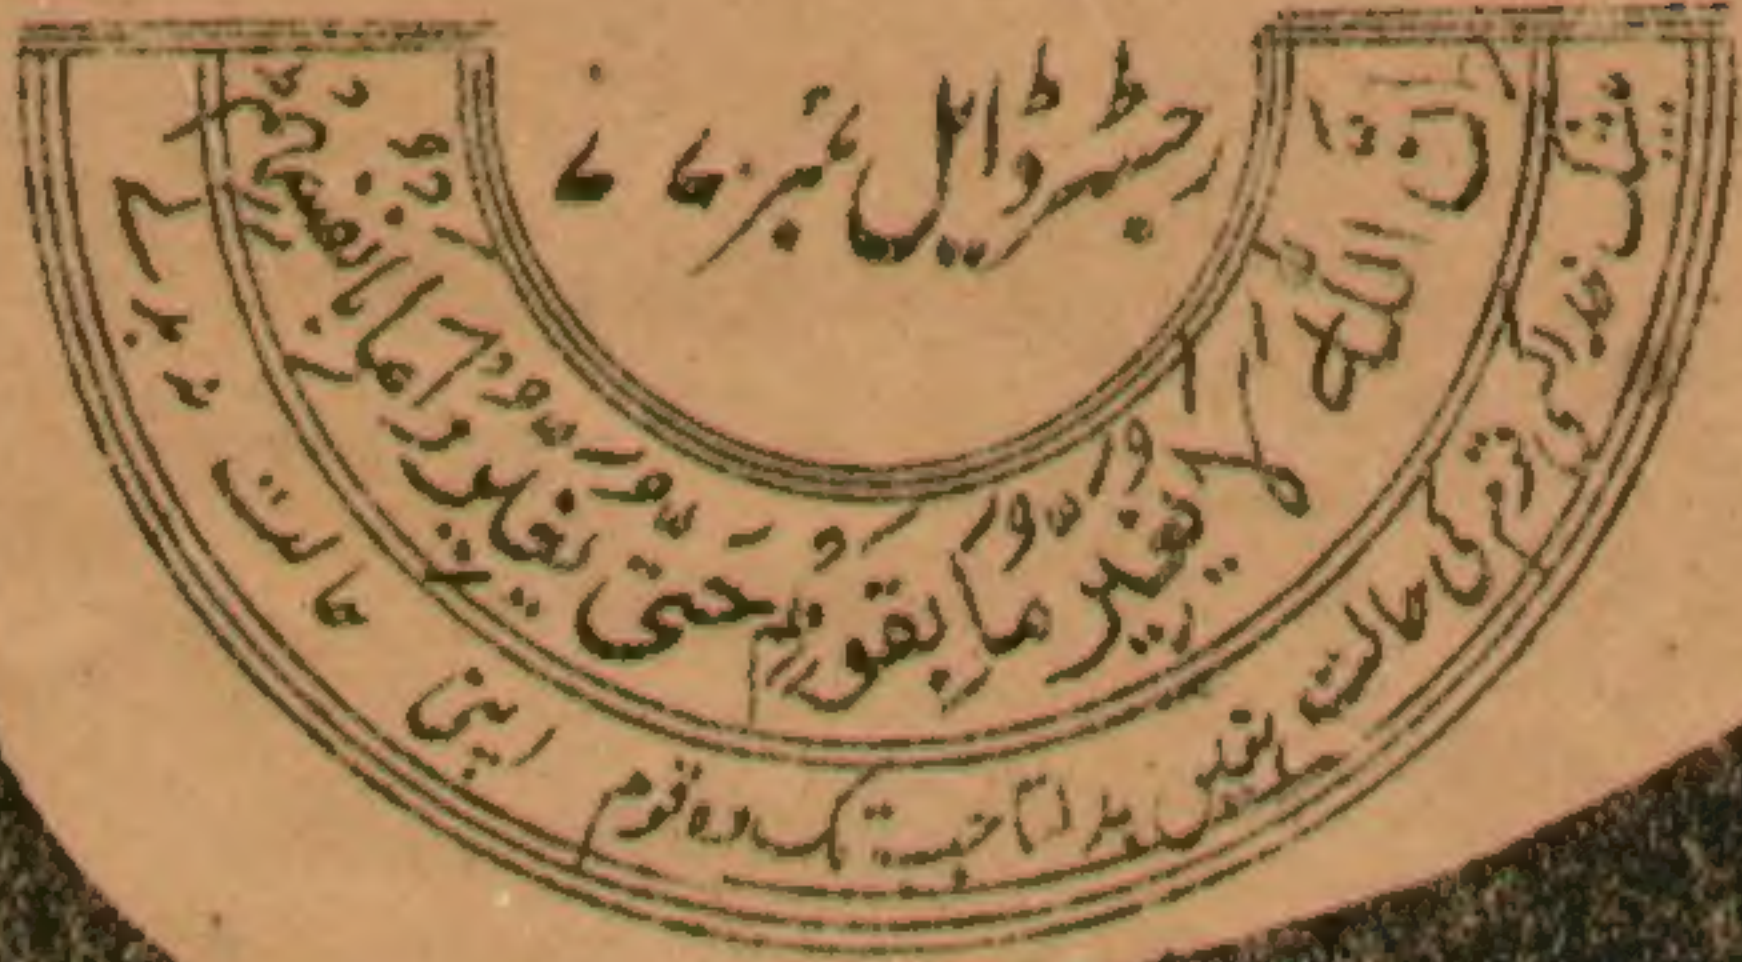 رجسٹرڈ ایل نمبر ۷۷
اِنَّ اللّٰہَ لَا یُغَیِّرُ مَا بِقَوْمٍ حَتّٰی یُغَیِّرُوْا مَا بِاَنْفُسِهِمْ
بیشک خدا کسی قوم کی حالت نہیں بدلتا جب تک وہ قوم اپنی حالت نہ بدلے